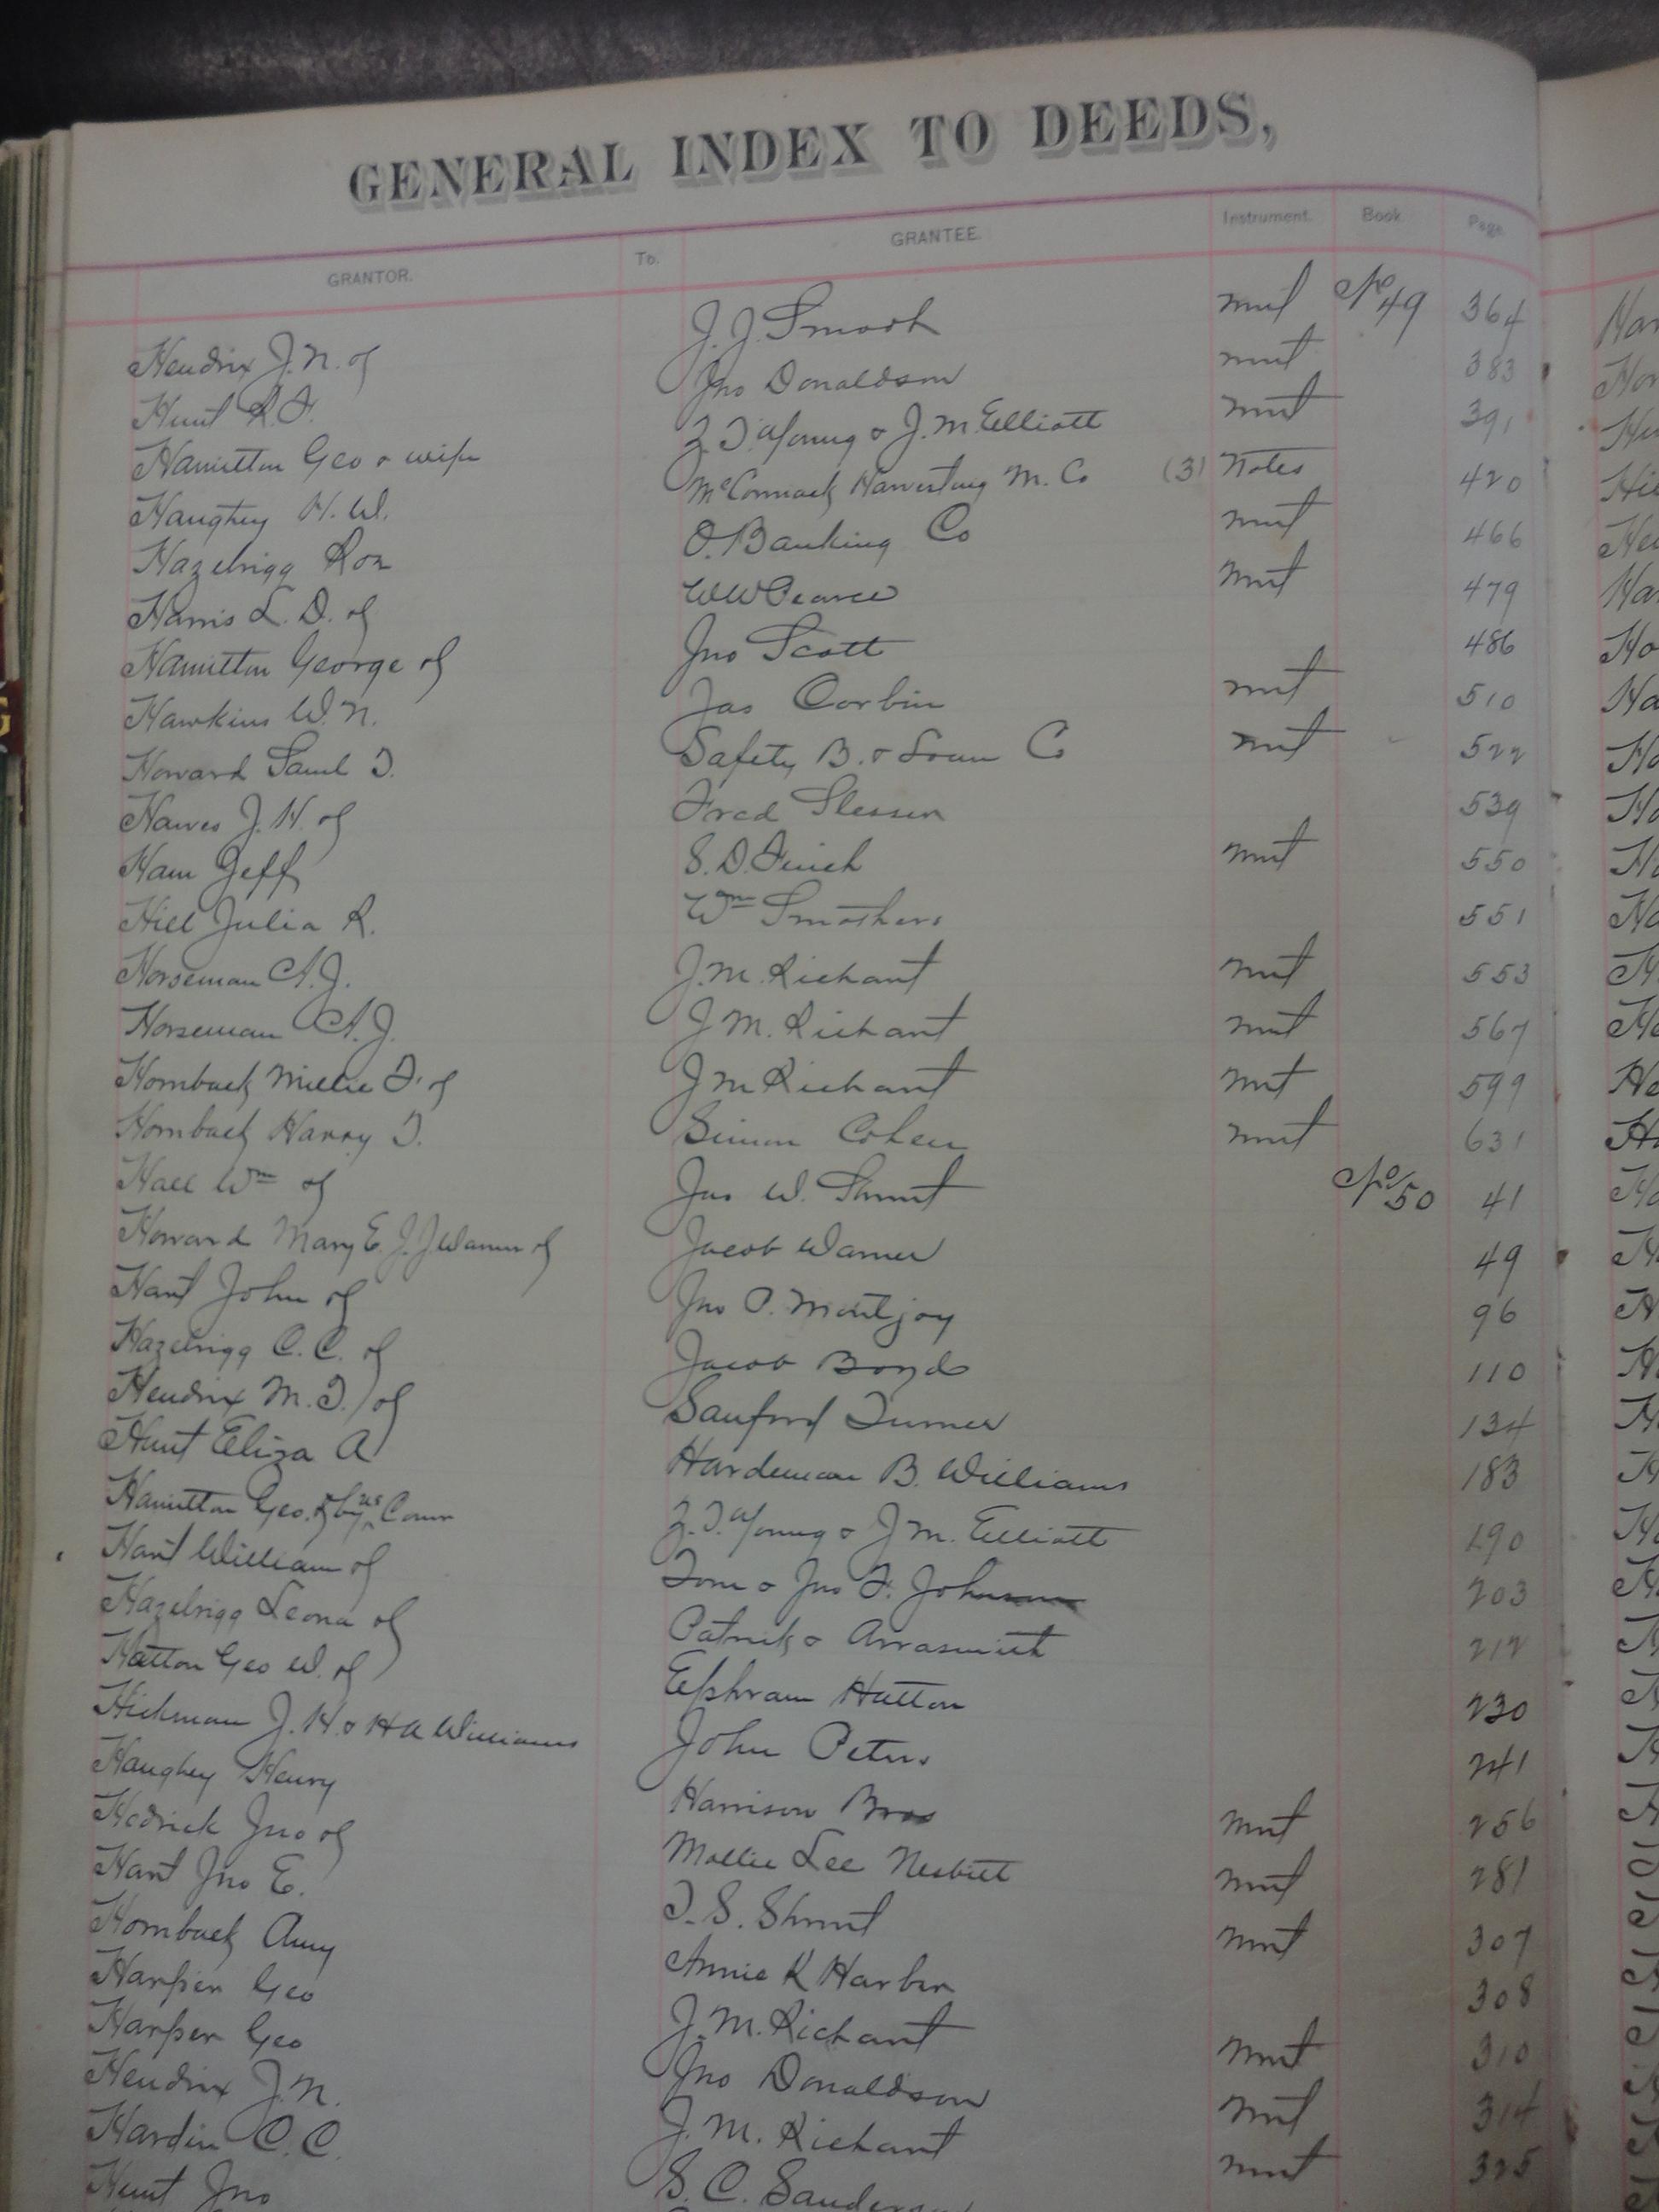 GENERAL INDEX TO DEEDS,
GRANTOR. To. GRANTEE. Instrument. Book Page.
Hendrix J. N. of J. J. Smoot mut No 49 364
Hunt R. F. Jno Donaldson mut 383
Hamilton Geo & wife Z. T. Young & J. M. Elliott mut 391
Haughey H. W. McCormack Harvesting M. Co (3) Notes 420
Hazelrigg Roz O. Banking Co mut 466
Harris L. D. of W W Pearce mut 479
Hamilton George of Jno Scott 486
Hawkins W. N. Jas Corbin mut 510
Howard Saml T. Safety B. & Loan Co mut 522
Hawes J. H. of Fred Slesser 539
Ham Jeff S. D. Finch mut 550
Hill Julia R. Wm Smathers 551
Horseman A. J. J. M. Richart mut 553
Horseman A. J. J M. Richart mut 567
Hornback Millie F. of J M Richart mut 599
Hornback Harry T. Simon Cohen mut 631
Hall Wm of Jas W. Shrout No 50 41
Howard Mary E. J. J Warner of Jacob Warner 49
Hart John of Jno P. Montjoy 96
Hazelrigg C. C. of Jacob Boyd 110
Hendrix M. T. of Sanford Turner 134
Hunt Eliza A Hardeman B. Williams 183
Hamilton Geo. of by Comr Z. T. Young & J. M. Elliott 190
Hart William of Tom & Jno F. Johnson 203
Hazelrigg Leona of Patrick & Arrasmith 212
Hatton Geo W. of Ephram Hatton 230
Hickman J. H. & H A Williams John Peters 241
Haughey Henry Harrison Bros mut 256
Hedrick Jno of Mollie Lee Nesbitt mut 281
Hart Jno E. T. S. Shrout mut 307
Hornback Amy Annie K Harber 308
Harper Geo J. M. Richart mut 310
Harper Geo Jno Donaldson mut 314
Hendrix J. N. J. M. Richart mut 325
Hardin C. C. S. C. Sanderson
Hunt Jno